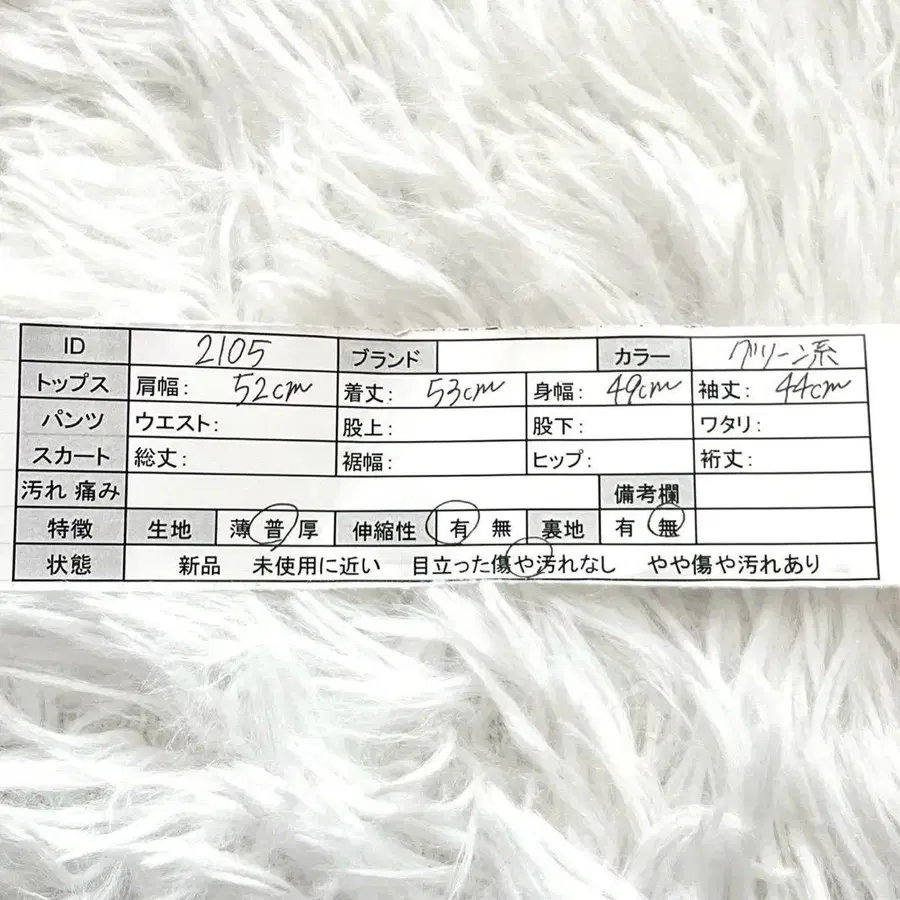 ID 2105 ブランド カラー グリーン系
トップス 肩幅: 52cm 着丈: 53cm 身幅: 49cm 袖丈: 44cm
パンツ ウエスト: 股上: 股下: ワタリ:
スカート 総丈: 裾幅: ヒップ: 裄丈:
汚れ 痛み 備考欄
特徴 生地 薄 普 厚 伸縮性 有 無 裏地 有 無
状態 新品 未使用に近い 目立った傷や汚れなし やや傷や汚れあり